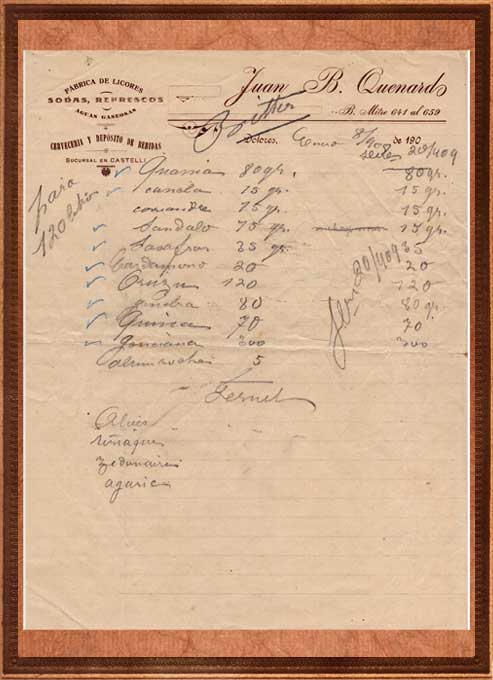 FÁBRICA DE LICORES
SODAS, REFRESCOS
AGUAS GASEOSAS
CERVECERIA Y DEPÓSITO DE BEBIDAS
SUCURSAL EN CASTELLI
Juan B. Quenard
B. Mitre 641 al 659
Bitter
Dolores, Enero 8/908 de 190
20/1109
para
120 litros
Quassia 80 gr. 80 gr.
canela 15 gr. 15 gr.
coriandro 15 gr. 15 gr.
Sandalo 15 gr. 15 gr.
Sasafras 35 gr. 35
Cardamono 20 20
Oruzu 120 120
ginebra 80 80 gr.
Quina 70 70
Genciana 300 300
5
Fernet
Aloes
zedoaria
agaric